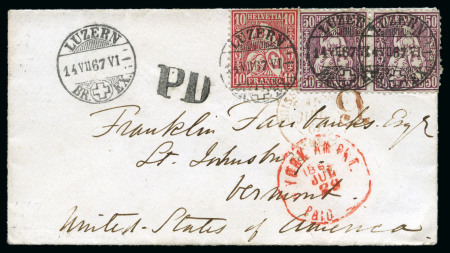 LUZERN
14 VII 67 VI
BR. EX.
PD
HELVETIA
10 10
FRANCO
50 50
FRANCO
50 50
FRANCO
LUZERN
14 VII 67 VI
9
Franklin Fairbanks. Esqr
St. Johnsbury
Vermont
United States of America.
YORK AM. PKT.
186
JUL
PAID